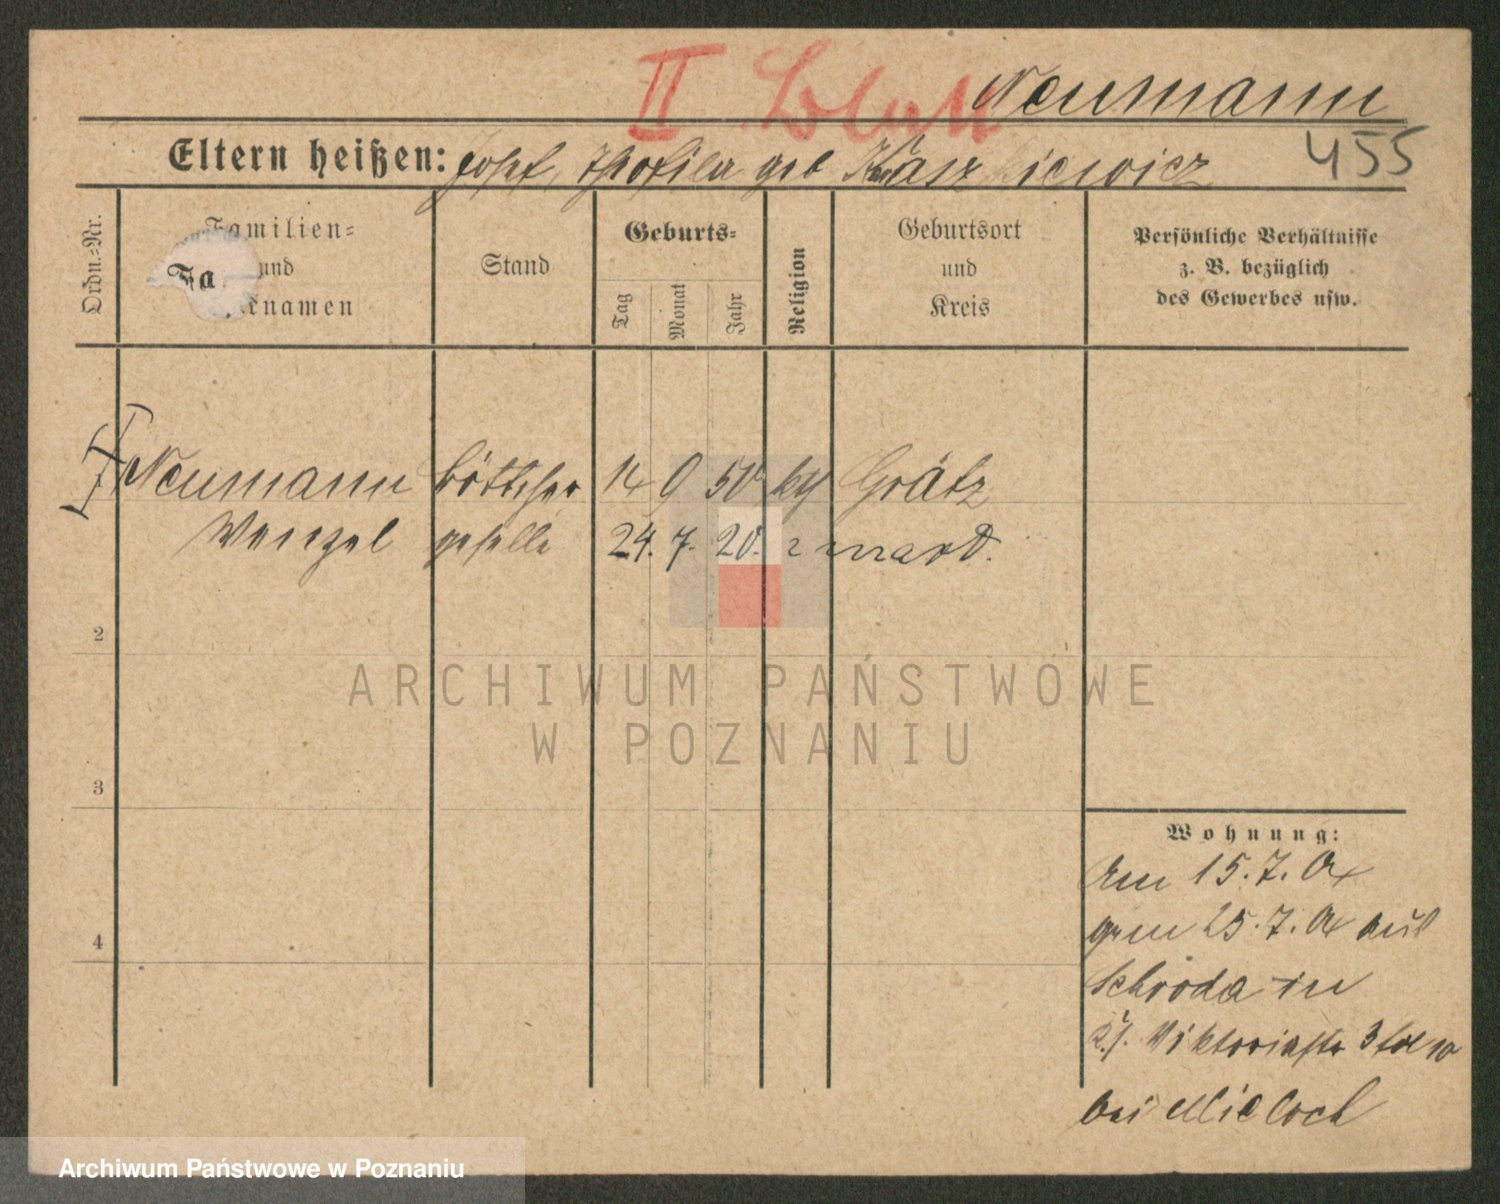 II Blatt
Neumann
Eltern heißen: Josef, Theofila geb
455
Ordn.-Nr.
Familien-
und
namen
Fa
Stand
Geburts-
Tag
Monat
Jahr
Religion
Geburtsort
und
Kreis
Persönliche Verhältnisse
z. B. bezüglich
des Gewerbes usw.
Neumann Böttcher 14 9 50 Grätz
Wenzel geselle 24. 7. 20.
2
3
4
Wohnung:
Am 15. 7. 04
gem 25. 7. 04 aus
Schroda in
Viktoriastr 3
bei Mieloch
ARCHIWUM PAŃSTWOWE
W POZNANIU
Archiwum Państwowe w Poznaniu